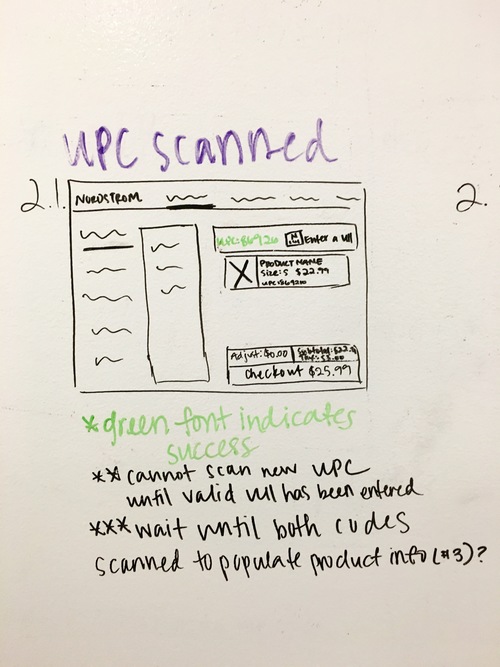 UPC scanned
2.1.
2.
NORDSTROM
UPC:869210
Enter a VII
PRODUCT NAME
Size: S $22.99
UPC:869210
Adjust: $0.00
Subtotal: $22.99
Tax: $3.00
Checkout $25.99
*green font indicates
success
** cannot scan new UPC
until valid VII has been entered
*** wait until both codes
scanned to populate product info (#3)?